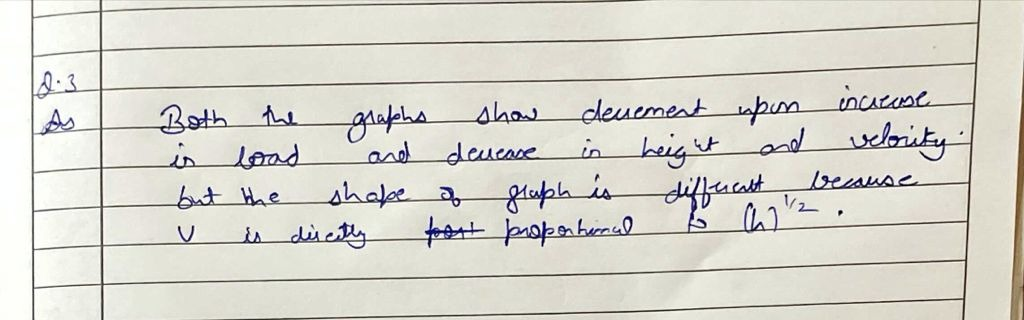 Q.3
As Both the graphs show decrement upon increase
in load and decrease in height and velocity.
but the shape of graph is different because
V is directly proportional to (h)^1/2.